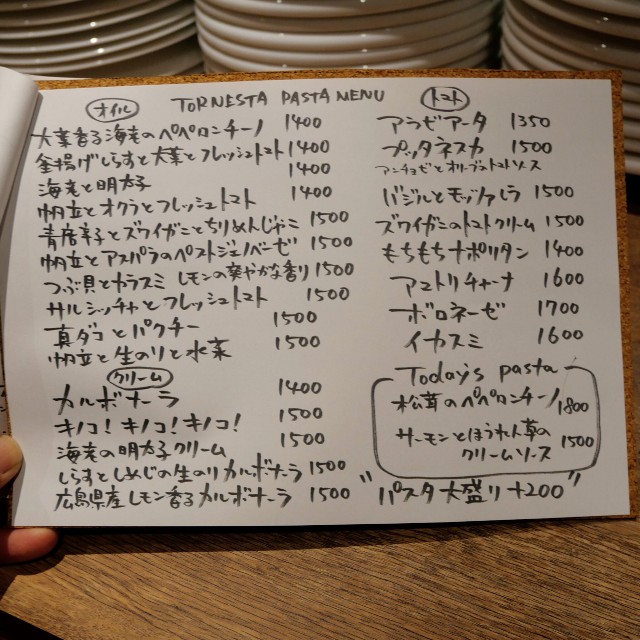 TORNESTA PASTA MENU
オイル
大葉香る海老のペペロンチーノ 1400
釜揚げしらすと大葉とフレッシュトマト 1400
海老と明太子 1400
帆立とオクラとフレッシュトマト 1400
青唐辛子とズワイガニとちりめんじゃこ 1500
帆立とアスパラのペストジェノベーゼ 1500
つぶ貝とカラスミ レモンの爽やかな香り 1500
サルシッチャとフレッシュトマト 1500
真ダコとパクチー 1500
帆立と生のりと水菜 1500
クリーム
カルボナーラ 1400
キノコ！キノコ！キノコ！ 1500
海老の明太子クリーム 1500
しらすとしめじの生のりカルボナーラ 1500
広島県産レモン香るカルボナーラ 1500
トマト
アラビアータ 1350
プッタネスカ 1500
アンチョビとオリーブのトマトソース
バジルとモッツァレラ 1500
ズワイガニのトマトクリーム 1500
もちもちナポリタン 1400
アマトリチャーナ 1600
ボロネーゼ 1700
イカスミ 1600
Today's pasta
松茸のペペロンチーノ 1800
サーモンとほうれん草の
クリームソース 1500
"パスタ大盛り+200"